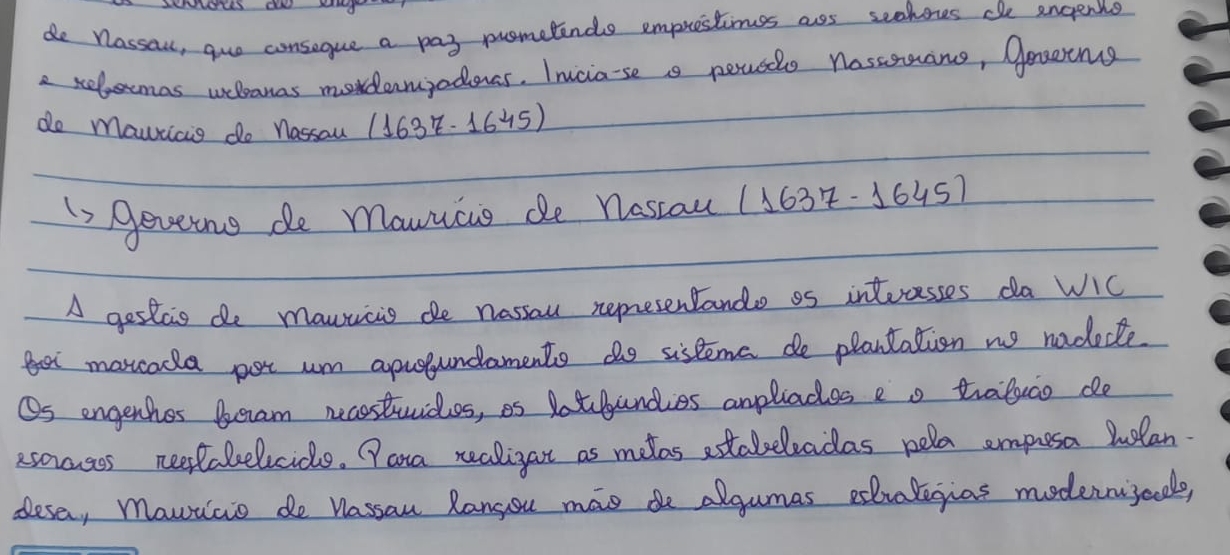 os senhores de engenho,
de Nassau, que consegue a paz prometendo empréstimos aos senhores de engenho
e reformas urbanas modernizadoras. Inicia-se o período Nassoviano, Governo
de Maurício de Nassau (1637-1645)
↳ Governo de Maurício de Nassau (1637-1645)
A gestão de Maurício de Nassau representando os interesses da WIC
foi marcada por um aprofundamento do sistema de plantation no nodeste.
Os engenhos foram recostruidos, os latifúndios ampliados e o tráfico de
escravos reestabelecido. Para realizar as metas estabeleadas pela empresa holan-
desa, Maurício de Nassau lançou mão de algumas estratégias modernizado,